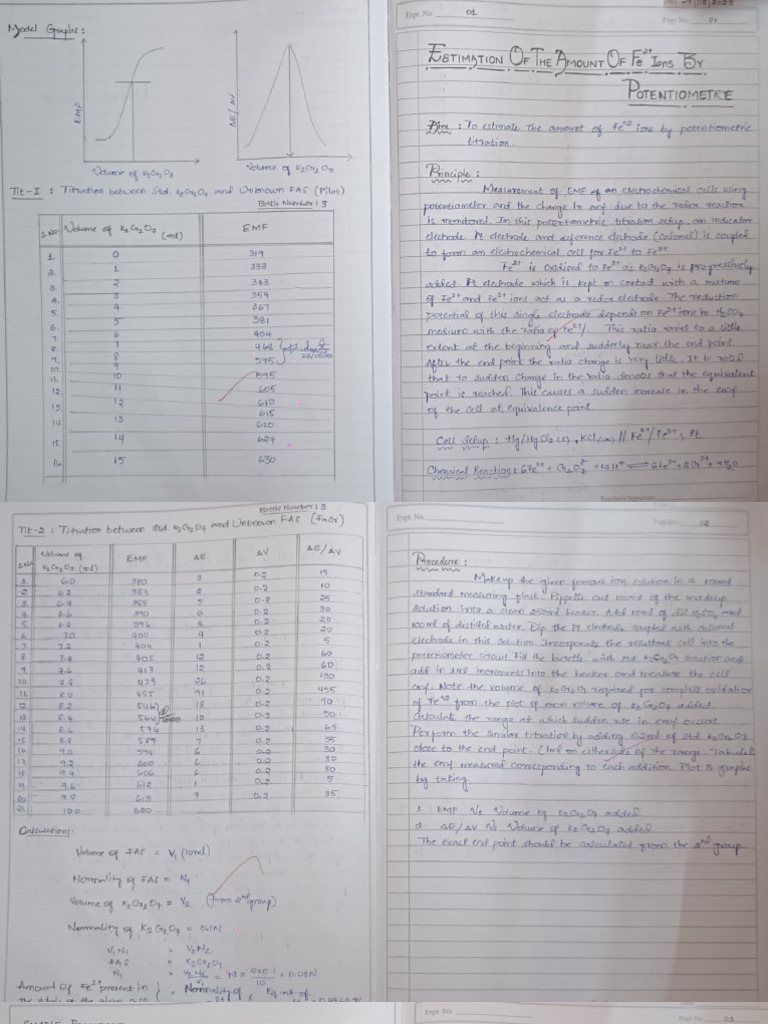 Model Graphs:
EMF
Volume of K2Cr2O7
ΔE/ΔV
Volume of K2Cr2O7
Tit-I : Titration between Std. K2Cr2O7 and Unknown FAS (Pilot)
Bottle Number: 3
S.No Volume of K2Cr2O7 (ml) EMF
1. 0 319
2. 1 333
3. 2 343
4. 3 354
5. 4 367
6. 5 381
6 404
7 462
8 575
9. 9
10. 10 595
11. 11 605
12. 12 610
13. 615
14. 13 620
15. 14 627
16. 15 630
Expt. No. 01
Page No. 01
ESTIMATION OF THE AMOUNT OF Fe2+ IONS BY
POTENTIOMETRE
Aim : To estimate the amount of Fe+2 ions by potentiometric
titration.
Principle :
Measurement of EMF of an electrochemical cells using
potentiometer and the change in emf due to the redox reaction
is monitored. In this potentiometric titration setup, an indicator
electrode Pt electrode and reference electrode (calomel) is coupled
to form an electrochemical cell for Fe2+ to Fe3+
Fe2+ is oxidised to Fe3+ as K2Cr2O7 is progressively
added. Pt electrode which is kept in contact with a mixture
of Fe2+ and Fe3+ ions act as a redox electrode. The reduction
potential of this single electrode depends on Fe2+ ions to H2SO4
medium with the ratio of Fe2+/ This ratio varies to a little
extent at the beginning and suddenly near the end point.
After the end point the ratio change is very little. It is noted
that to sudden change in the ratio denotes that the equivalent
point is reached. This causes a sudden increase in the emf
of the cell at equivalence point.
Cell Setup : Hg/Hg2Cl2(s), KCl(sat) // Fe2+/Fe3+, Pt
Chemical Reaction : 6Fe2+ + Cr2O7 2- + 14H+ ⇌ 6Fe3+ + 2Cr3+ + 7H2O
Teacher's Signature
Bottle Number: 3
Tit-2 : Titration between Std K2Cr2O7 and Unknown FAS
S.No Volume of K2Cr2O7 (ml) EMF ΔE ΔV ΔE/ΔV
1. 6.0 380 3 0.2 15
2. 6.2 383 2 0.2 10
3. 6.4 385 5 0.2 25
4. 6.6 390 6 0.2 30
5. 6.8 396 4 0.2 20
6. 7.0 400 4 0.2 20
7. 7.2 404 1 0.2 5
8. 7.4 405 12 0.2 60
9. 7.6 417 12 0.2 60
10. 7.8 429 26 0.2 130
11. 8.0 455 91 0.2 455
12. 8.2 546 18 0.2 90
13. 8.4 564 10 0.2 50
14. 8.6 574 13 0.2 65
15. 8.8 587 7 0.2 35
16. 9.0 594 6 0.2 30
17. 9.2 600 6 0.2 30
18. 9.4 606 6 0.2 30
19. 9.6 612 1 0.2 5
20. 9.8 613 7 0.2 35
21. 10.0 620
Calculations:
Volume of FAS = V1 (10ml)
Normality of FAS = N1
Volume of K2Cr2O7 = V2 (from 2nd group)
Normality of K2Cr2O7 = 0.1N
V1N1 = V2N2
FAS = K2Cr2O7
N1 = V2N2/V1 = = 0.08N
Amount Of Fe2+ present in } = Normality of x Eq.wt of
Expt. No.
Page No. 02
Procedure :
Makeup the given ferrous ion solution in a 100ml
standard measuring flask. Pippette out 10ml of the madeup
solution into a clean 250ml beaker. Add 10ml of dil. H2SO4 and
100ml of distilled water. Dip the Pt electrode coupled with calomel
electrode in this solution Incorporate the resultant cell into the
potensometer circuit Fill the burette with std K2Cr2O7 solution and
add in 1ml increments into the beaker and measure the cell
emf. Note the volume of K2Cr2O7 required for complete oxidation
of Fe2+ from the plot of emf volume of K2Cr2O7 added.
calculate the range at which sudden rise in emf occurs
Perform the similar titration by adding 0.2ml of std K2Cr2O7
close to the end point. (1ml on either side of the range. Tabulate
the emf measured corresponding to each addition. Plot 2 graphs
by taking
1. EMF Vs Volume of K2Cr2O7 added
2. ΔE/ΔV Vs Volume of K2Cr2O7 added
The exact end point should be calculated from the 2nd group
Expt. No.
Page No. 03